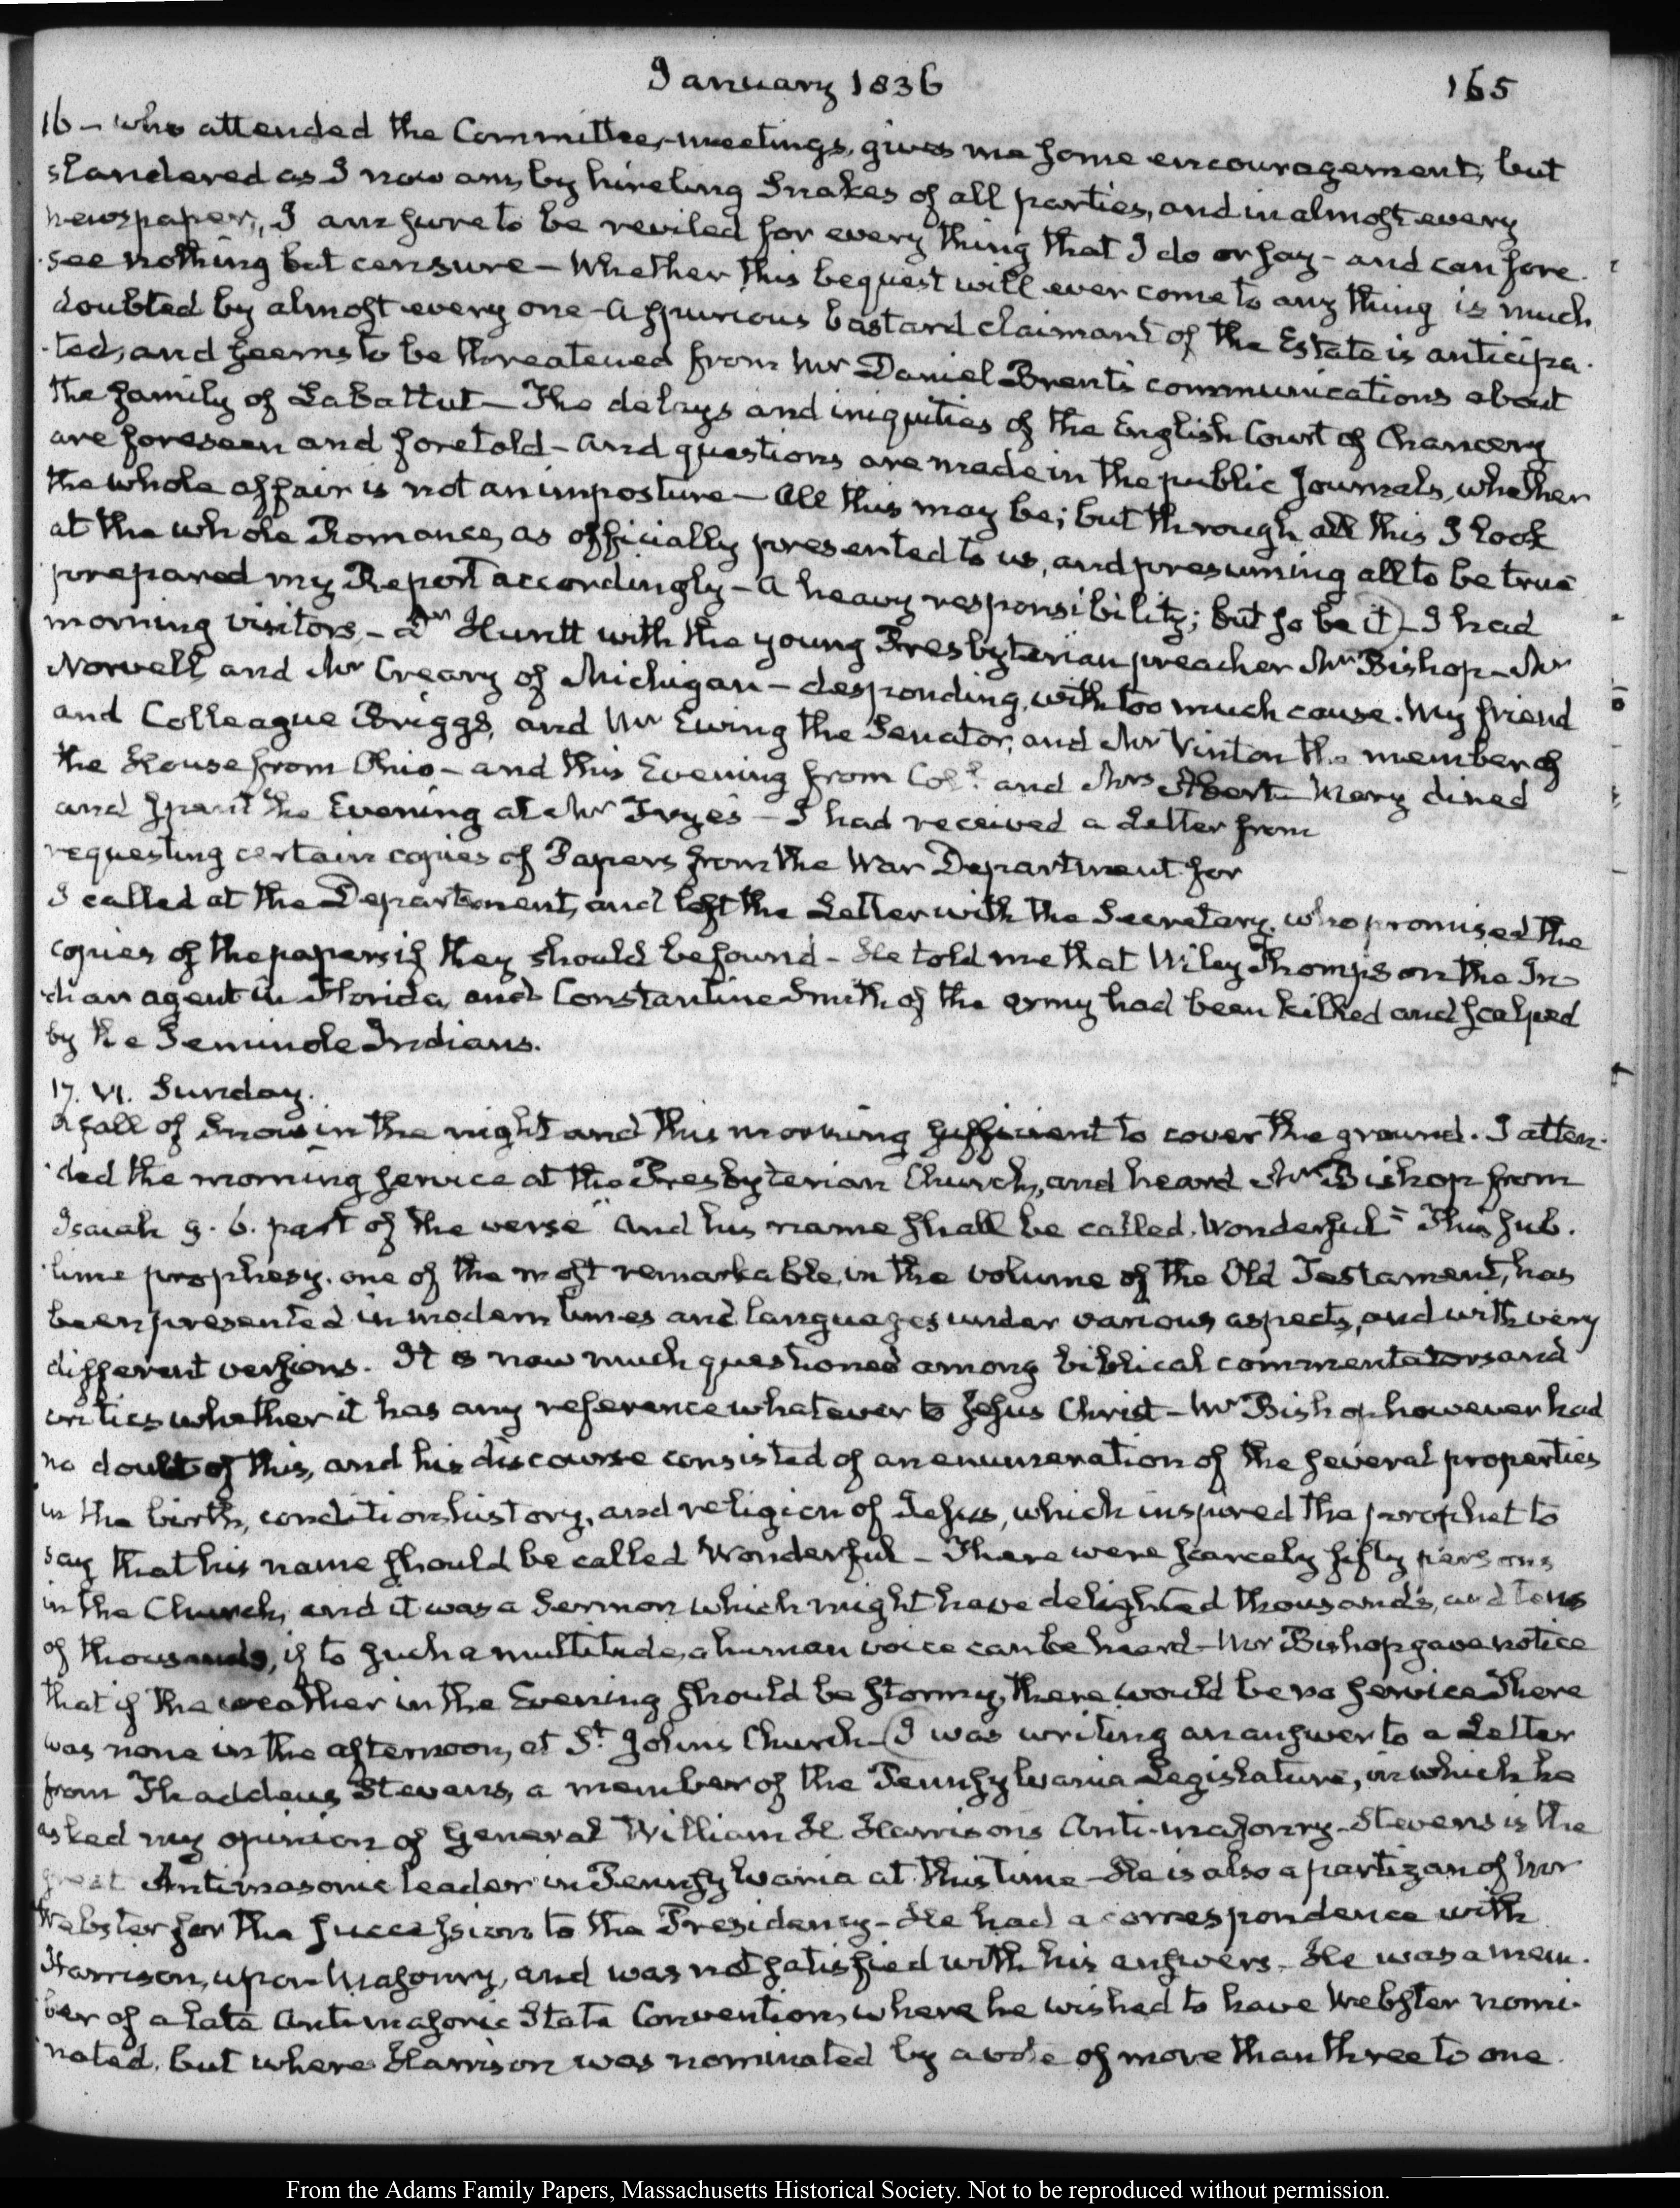 January 1836
165
16 – who attended the Committee-meetings, gives me some encouragement; but
slandered as I now am, by hireling Snakes of all parties, and in almost every
newspaper, I am sure to be reviled for every thing that I do or say – and can fore-
-see nothing but censure – Whether this bequest will ever come to any thing is much
doubted by almost every one – A spurious bastard claimant of the Estate is anticipa-
-ted, and seems to be threatened from Mr Daniel Brent's communications about
the family of LaBattut – The delays and iniquities of the English Court of Chancery
are foreseen and foretold – and questions are made in the public Journals, whether
the whole affair is not an imposture – All this may be; but through all this I look
at the whole Romance, as officially presented to us, and presuming all to be true
prepared my Report accordingly – A heavy responsibility; but so be it – I had
morning visitors – Dr Huntt with the young Presbyterian preacher Mr Bishop – Mr
Norvell and Mr Creary of Michigan – desponding, with too much cause. My friend
and Colleague Briggs, and Mr Ewing the Senator, and Mr Vinton the member of
the House from Ohio – and this Evening from Coll. and Mrs Abert – Mary dined
and spent the Evening at Mr Frye's – I had received a Letter from
requesting certain copies of Papers from the War Department for
I called at the Department, and left the Letter with the Secretary, who promised the
copies of the papers if they should be found – He told me that Wiley Thompson the In-
-dian agent in Florida, and Constantine Smith of the army had been killed and scalped
by the Seminole Indians.
17. VI. Sunday.
A fall of Snow in the night and this morning sufficient to cover the ground. I atten-
-ded the morning service at the Presbyterian Church, and heard Mr Bishop from
Isaiah 9. 6. part of the verse "And his name shall be called, Wonderful" This sub-
-lime prophesy, one of the most remarkable, in the volume of the Old Testament, has
been presented in modern times and languages under various aspects, and with very
different versions. It is now much questioned among biblical commentators and
critics whether it has any reference whatever to Jesus Christ – Mr Bishop however had
no doubt of this, and his discourse consisted of an enumeration of the several properties
in the birth, condition, history, and religion of Jesus, which inspired the prophet to
say that his name should be called Wonderful – There were scarcely fifty persons
in the Church, and it was a Sermon which might have delighted thousands, and tens
of thousands, if to such a multitude, a human voice can be heard – Mr Bishop gave notice
that if the weather in the Evening should be stormy, there would be no service There
was none in the afternoon, at St. John's Church – I was writing an answer to a Letter
from Thaddeus Stevens, a member of the Pennsylvania Legislature, in which he
asked my opinion of General William H Harrisons Anti-masonry – Stevens is the
great Antimasonic leader in Pennsylvania at this time – He is also a partizan of Mr
Webster for the succession to the Presidency – He had a correspondence with
Harrison, upon Masonry, and was not satisfied with his answers. He was a mem-
-ber of a late Anti-masonic State Convention, where he wished to have Webster nomi-
-nated, but where Harrison was nominated by a vote of more than three to one.
From the Adams Family Papers, Massachusetts Historical Society. Not to be reproduced without permission.